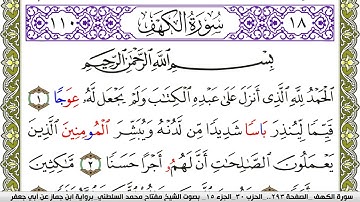 ١٨ سُورَةُ الكَهْفِ ١١٠
بِسْمِ اللَّهِ الرَّحْمَٰنِ الرَّحِيمِ
الْحَمْدُ لِلَّهِ الَّذِي أَنزَلَ عَلَىٰ عَبْدِهِ الْكِتَابَ وَلَمْ يَجْعَل لَّهُ عِوَجًا ١
قَيِّمًا لِّيُنذِرَ بَاسًا شَدِيدًا مِّن لَّدُنْهُ وَيُبَشِّرَ الْمُومِنِينَ الَّذِينَ
يَعْمَلُونَ الصَّالِحَاتِ أَنَّ لَهُمُ أَجْرًا حَسَنًا ٢ مَّاكِثِينَ
سورة الكهف الصفحة ٢٩٣.. الحزب ٣٠ الجزء ١٥ بصوت الشيخ مفتاح محمد السلطني برواية ابن جماز عن أبي جعفر